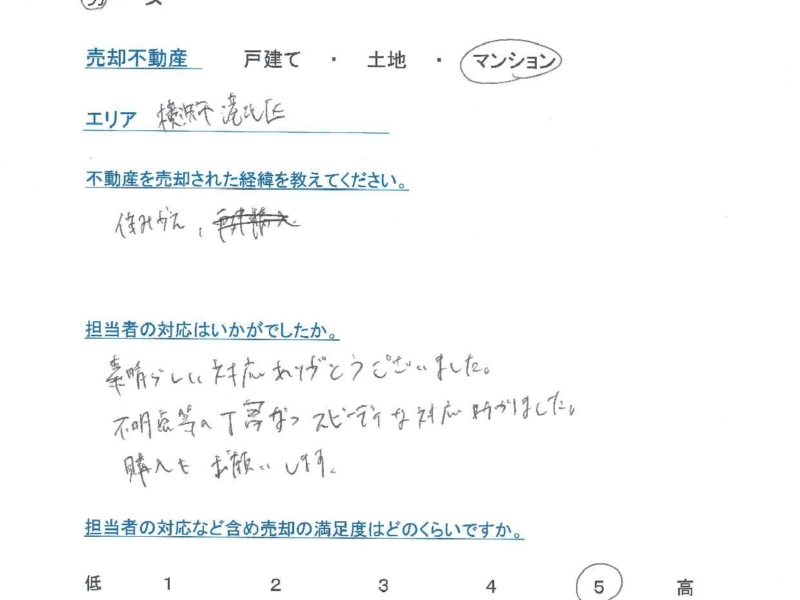 売却不動産 戸建て ・ 土地 ・ マンション
エリア 横浜市 港北区
不動産を売却された経緯を教えてください。
住みかえ、
担当者の対応はいかがでしたか。
素晴らしい対応ありがとうございました。
不明点等の丁寧かつスピーディな対応助かりました。
購入もお願いします。
担当者の対応など含め売却の満足度はどのくらいですか。
低 1 2 3 4 5 高